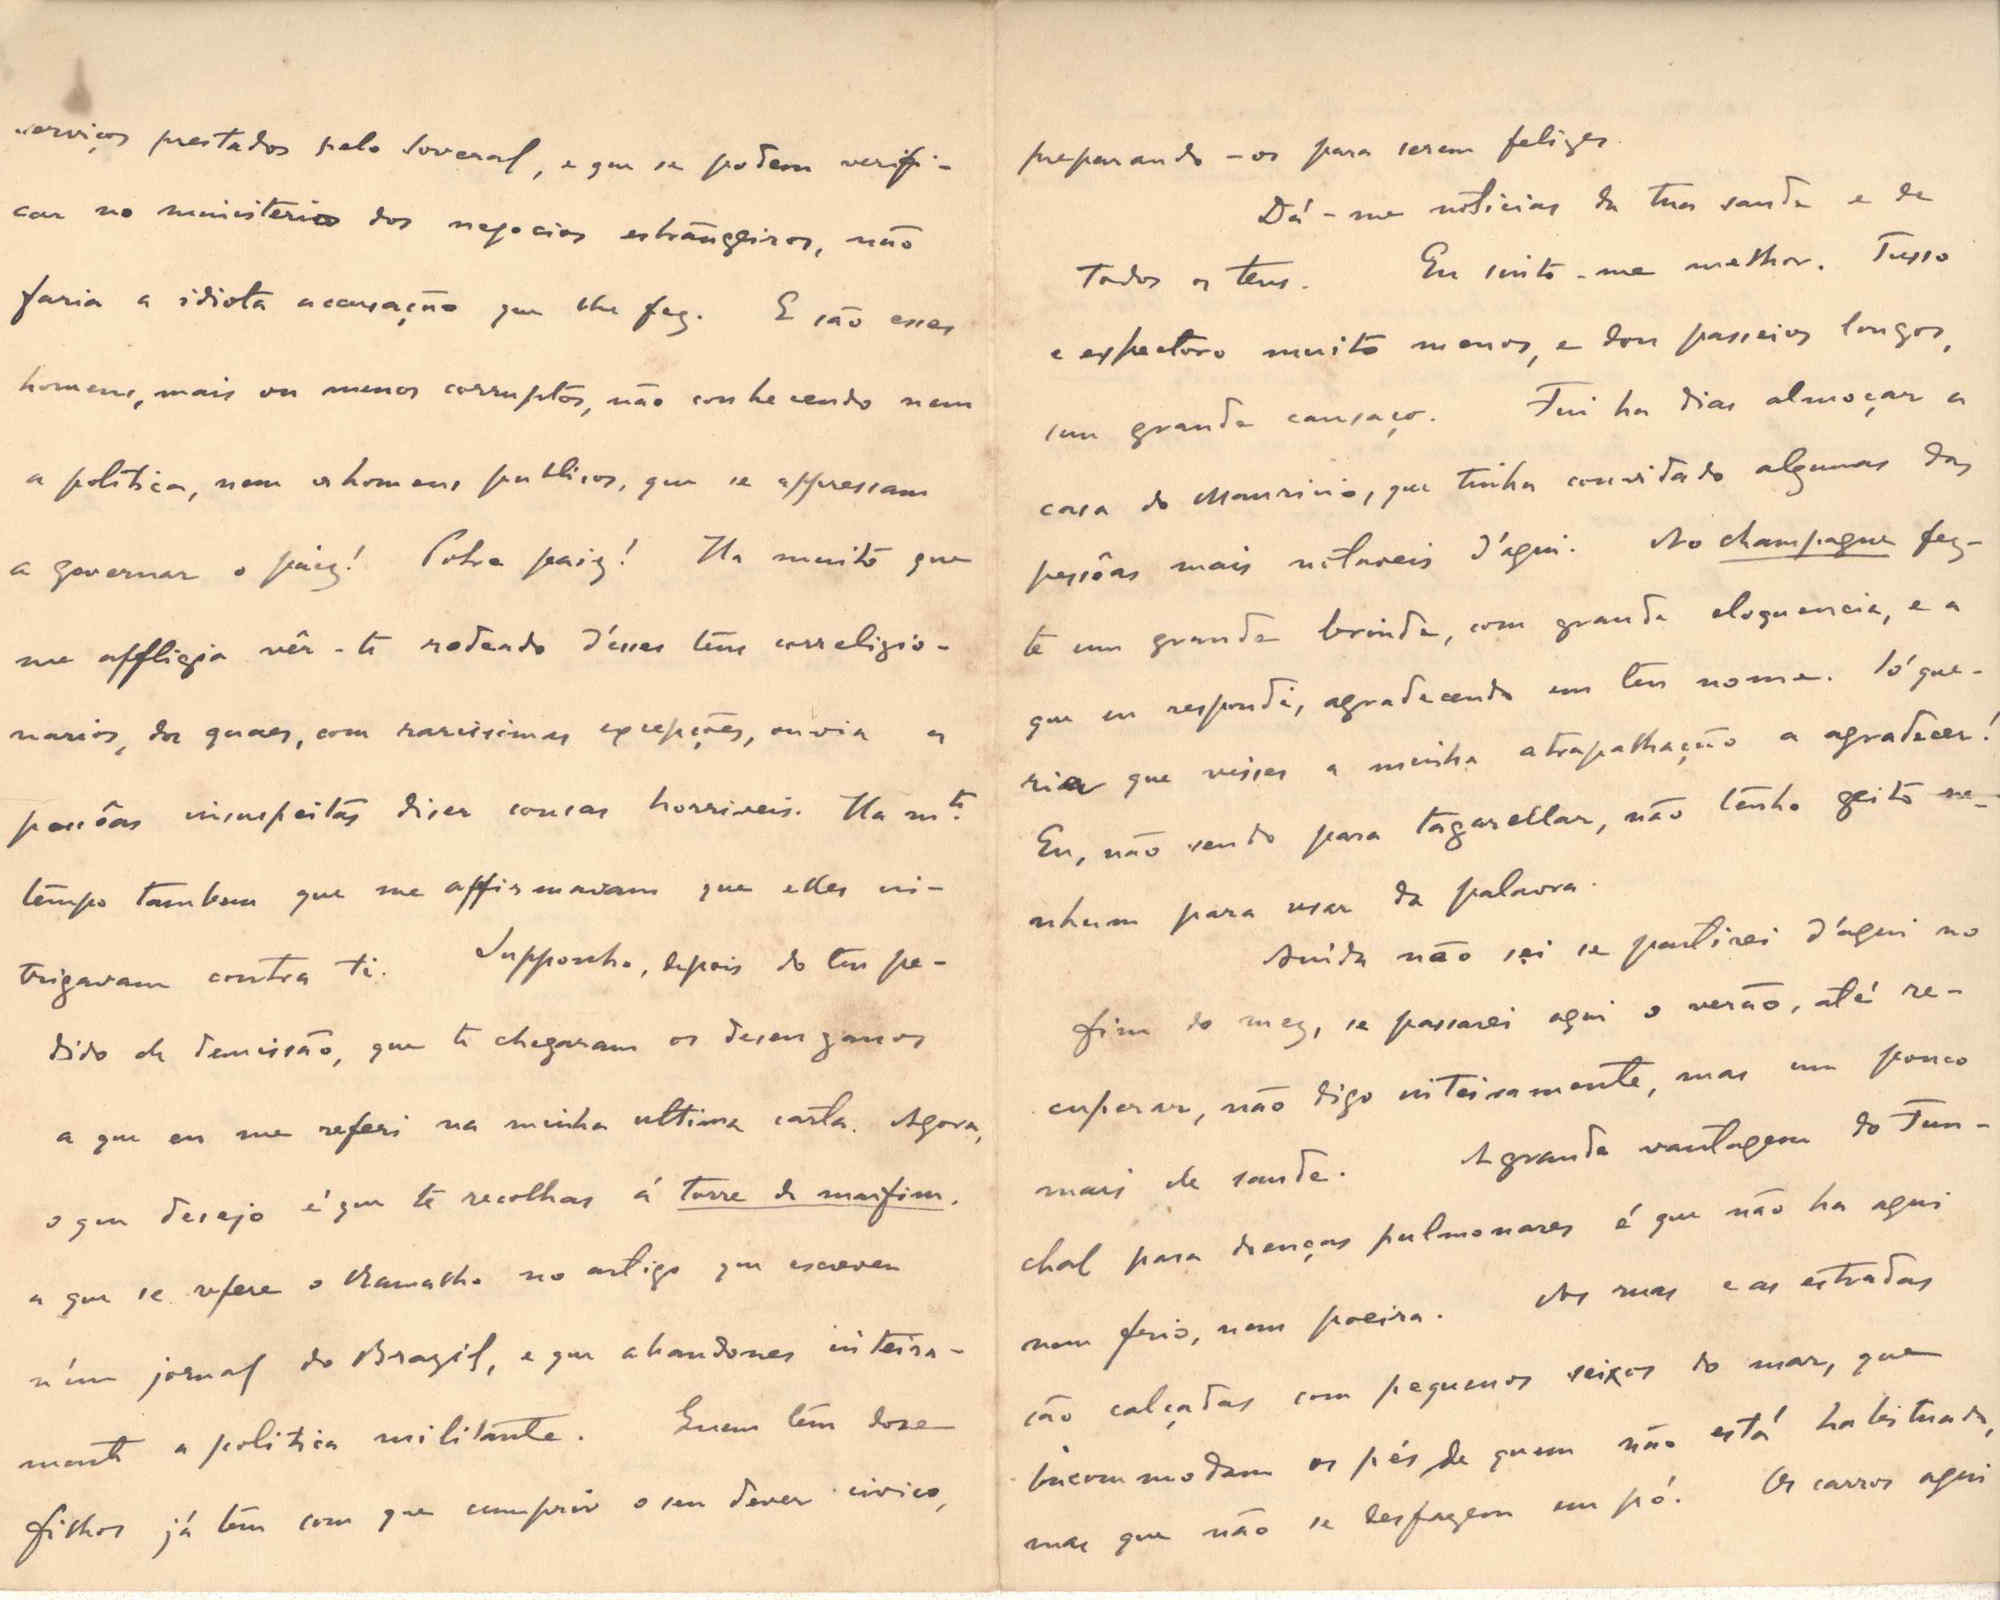 serviços prestados pelo Soveral, e que se podem verifi-
car no ministerio dos negocios estrangeiros, não
faria a idiota accusação que lhe fez. E são esses
homens, mais ou menos corruptos, não conhecendo nem
a politica, nem os homens publicos, que se appressam
a governar o paiz! Pobre paiz! Ha muito que
me affligia vêr-te rodeado d'esses teus correligio-
narios, dos quaes, com rarissimas excepções, ouvia a
pessôas insuspeitas diser cousas horriveis. Ha mto
tempo tambem que me affirmavam que elles in-
trigavam contra ti. Supponho, depois do teu pe-
dido de demissão, que te chegaram os desenganos
a que eu me referi na minha ultima carta. Agora,
o que desejo é que te recolhas á torre de marfim.
a que se refere o Ramalho no artigo que escreveu
n'um jornal do Brazil, e que abandones inteira-
mente a politica militante. Quem tem doze
filhos já tem com que cumprir o seu dever civico,
preparando-os para serem felizes.
Dá-me noticias da tua saude e de
todos os teus. Eu sinto-me melhor. Tusso
e expectoro muito menos, e dou passeios longos,
sem grande cansaço. Fui ha dias almoçar a
casa do Mauricio, que tinha convidado algumas das
pessôas mais notaveis d'aqui. Ao champagne fez-
te um grande brinde, com grande eloquencia, e a
que eu respondi, agradecendo em teu nome. Só que-
ria que visses a minha atrapalhação a agradecer!
Eu, não sendo para tagarellar, não tenho geito ne-
nhum para usar da palavra.
Ainda não sei se partirei d'aqui no
fim do mez, se passarei aqui o verão, até re-
cuperar, não digo inteiramente, mas um pouco
mais de saude. A grande vantagem do Fun-
chal para doenças pulmonares é que não ha aqui
nem frio, nem poeira. As ruas e as estradas
são calçadas com pequenos seixos do mar, que
incommodam os pés de quem não está habituado,
mas que não se desfazem em pó. Os carros aqui